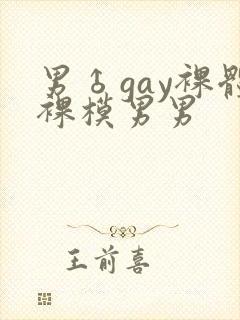 男♂gay裸體
裸模男男
王前喜